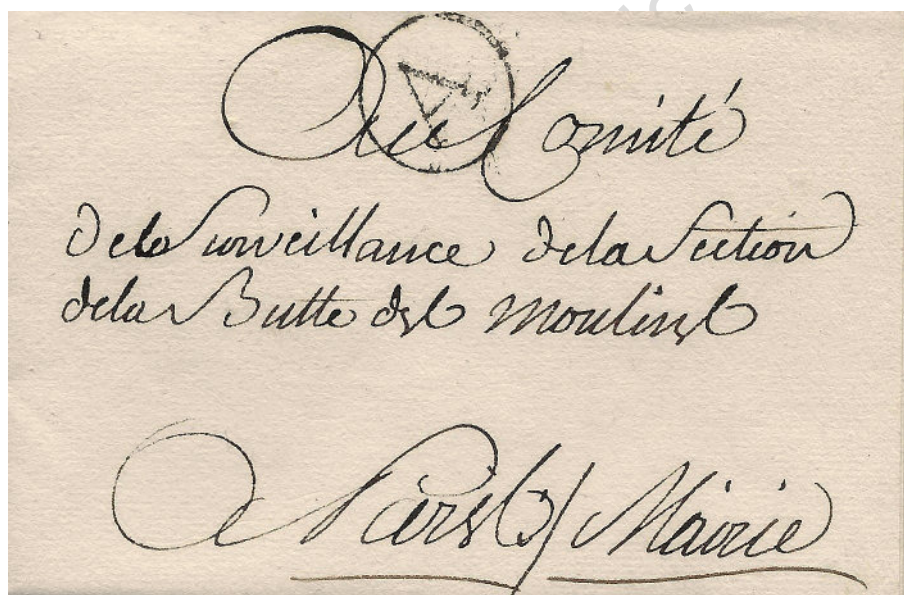 Au Comité
de la Surveillance de la Section
de la Butte des Moulins
A Paris / Mairie